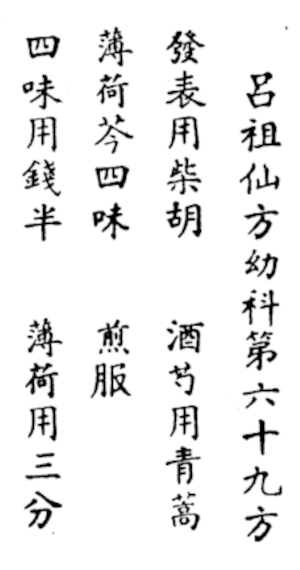 呂祖仙方幼科第六十九方
發表用柴胡　酒芍用青蒿
薄荷芩四味　煎服
四味用錢半　薄荷用三分